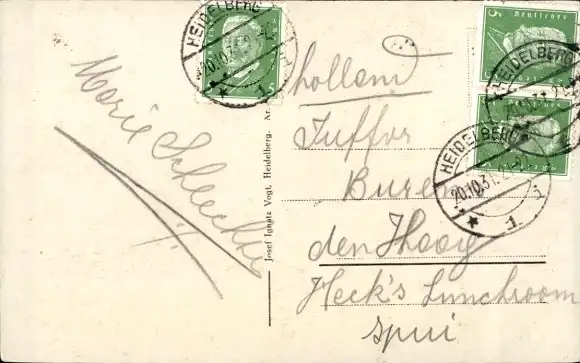 HEIDELBERG
20.10.31
1
5
5
Deutsches
HEIDELBERG
HEIDELBERG
20.10.31
1
Marie Schlechte
holland
Juffr
Bure
den Haag
Heck's Lunchroom
spui
Josef Ignatz Vogt, Heidelberg. Nr.